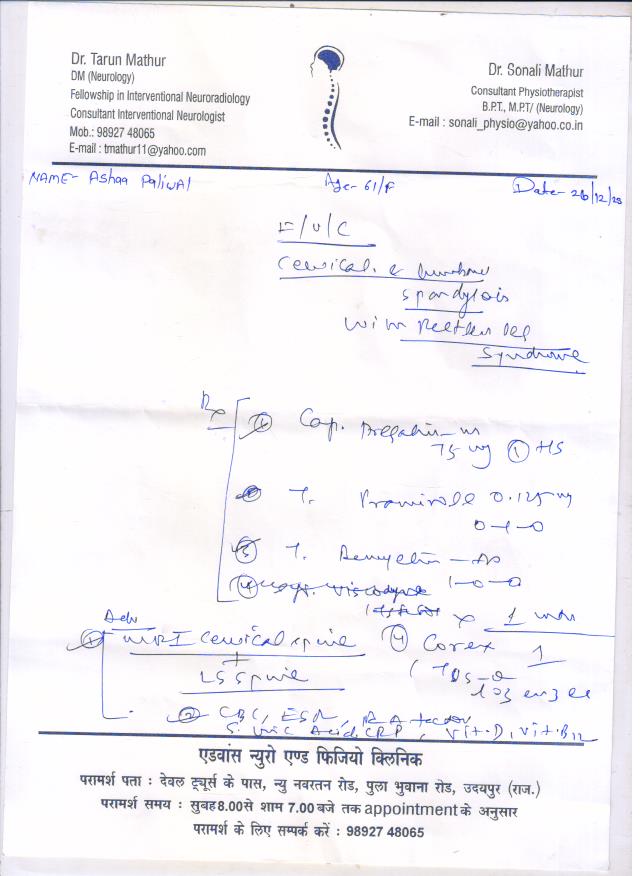 Dr. Tarun Mathur
DM (Neurology)
Fellowship in Interventional Neuroradiology
Consultant Interventional Neurologist
Mob.: 98927 48065
E-mail : tmathur11@yahoo.com
Dr. Sonali Mathur
Consultant Physiotherapist
B.P.T., M.P.T/ (Neurology)
E-mail : sonali_physio@yahoo.co.in
NAME- Ashaa Paliwal
Age- 61/F
Date- 26/12/20
F/U/C
Cervical &
Spondylosis
with Restless leg
Syndrome
Rx
① Cap.
75 mg ① HS
② T. 0.125 mg
0-1-0
③ T.
④
1-0-0
x 1
Adv
① MRI Cervical spine
+
LS Spine
④ Corex 1
② CBC, ESR, RA factor
S. Uric Acid, CRP, Vit.D, Vit.B12
एडवांस न्युरो एण्ड फिजियो क्लिनिक
परामर्श पता : देवल ट्यूर्स के पास, न्यु नवरतन रोड, पुला भुवाना रोड, उदयपुर (राज.)
परामर्श समय : सुबह 8.00 से शाम 7.00 बजे तक appointment के अनुसार
परामर्श के लिए सम्पर्क करें : 98927 48065